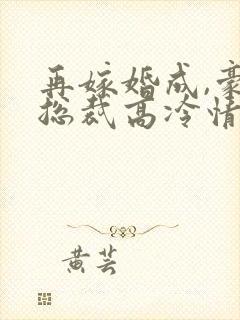 再嫁婚成,豪
总裁高冷情
黄芸